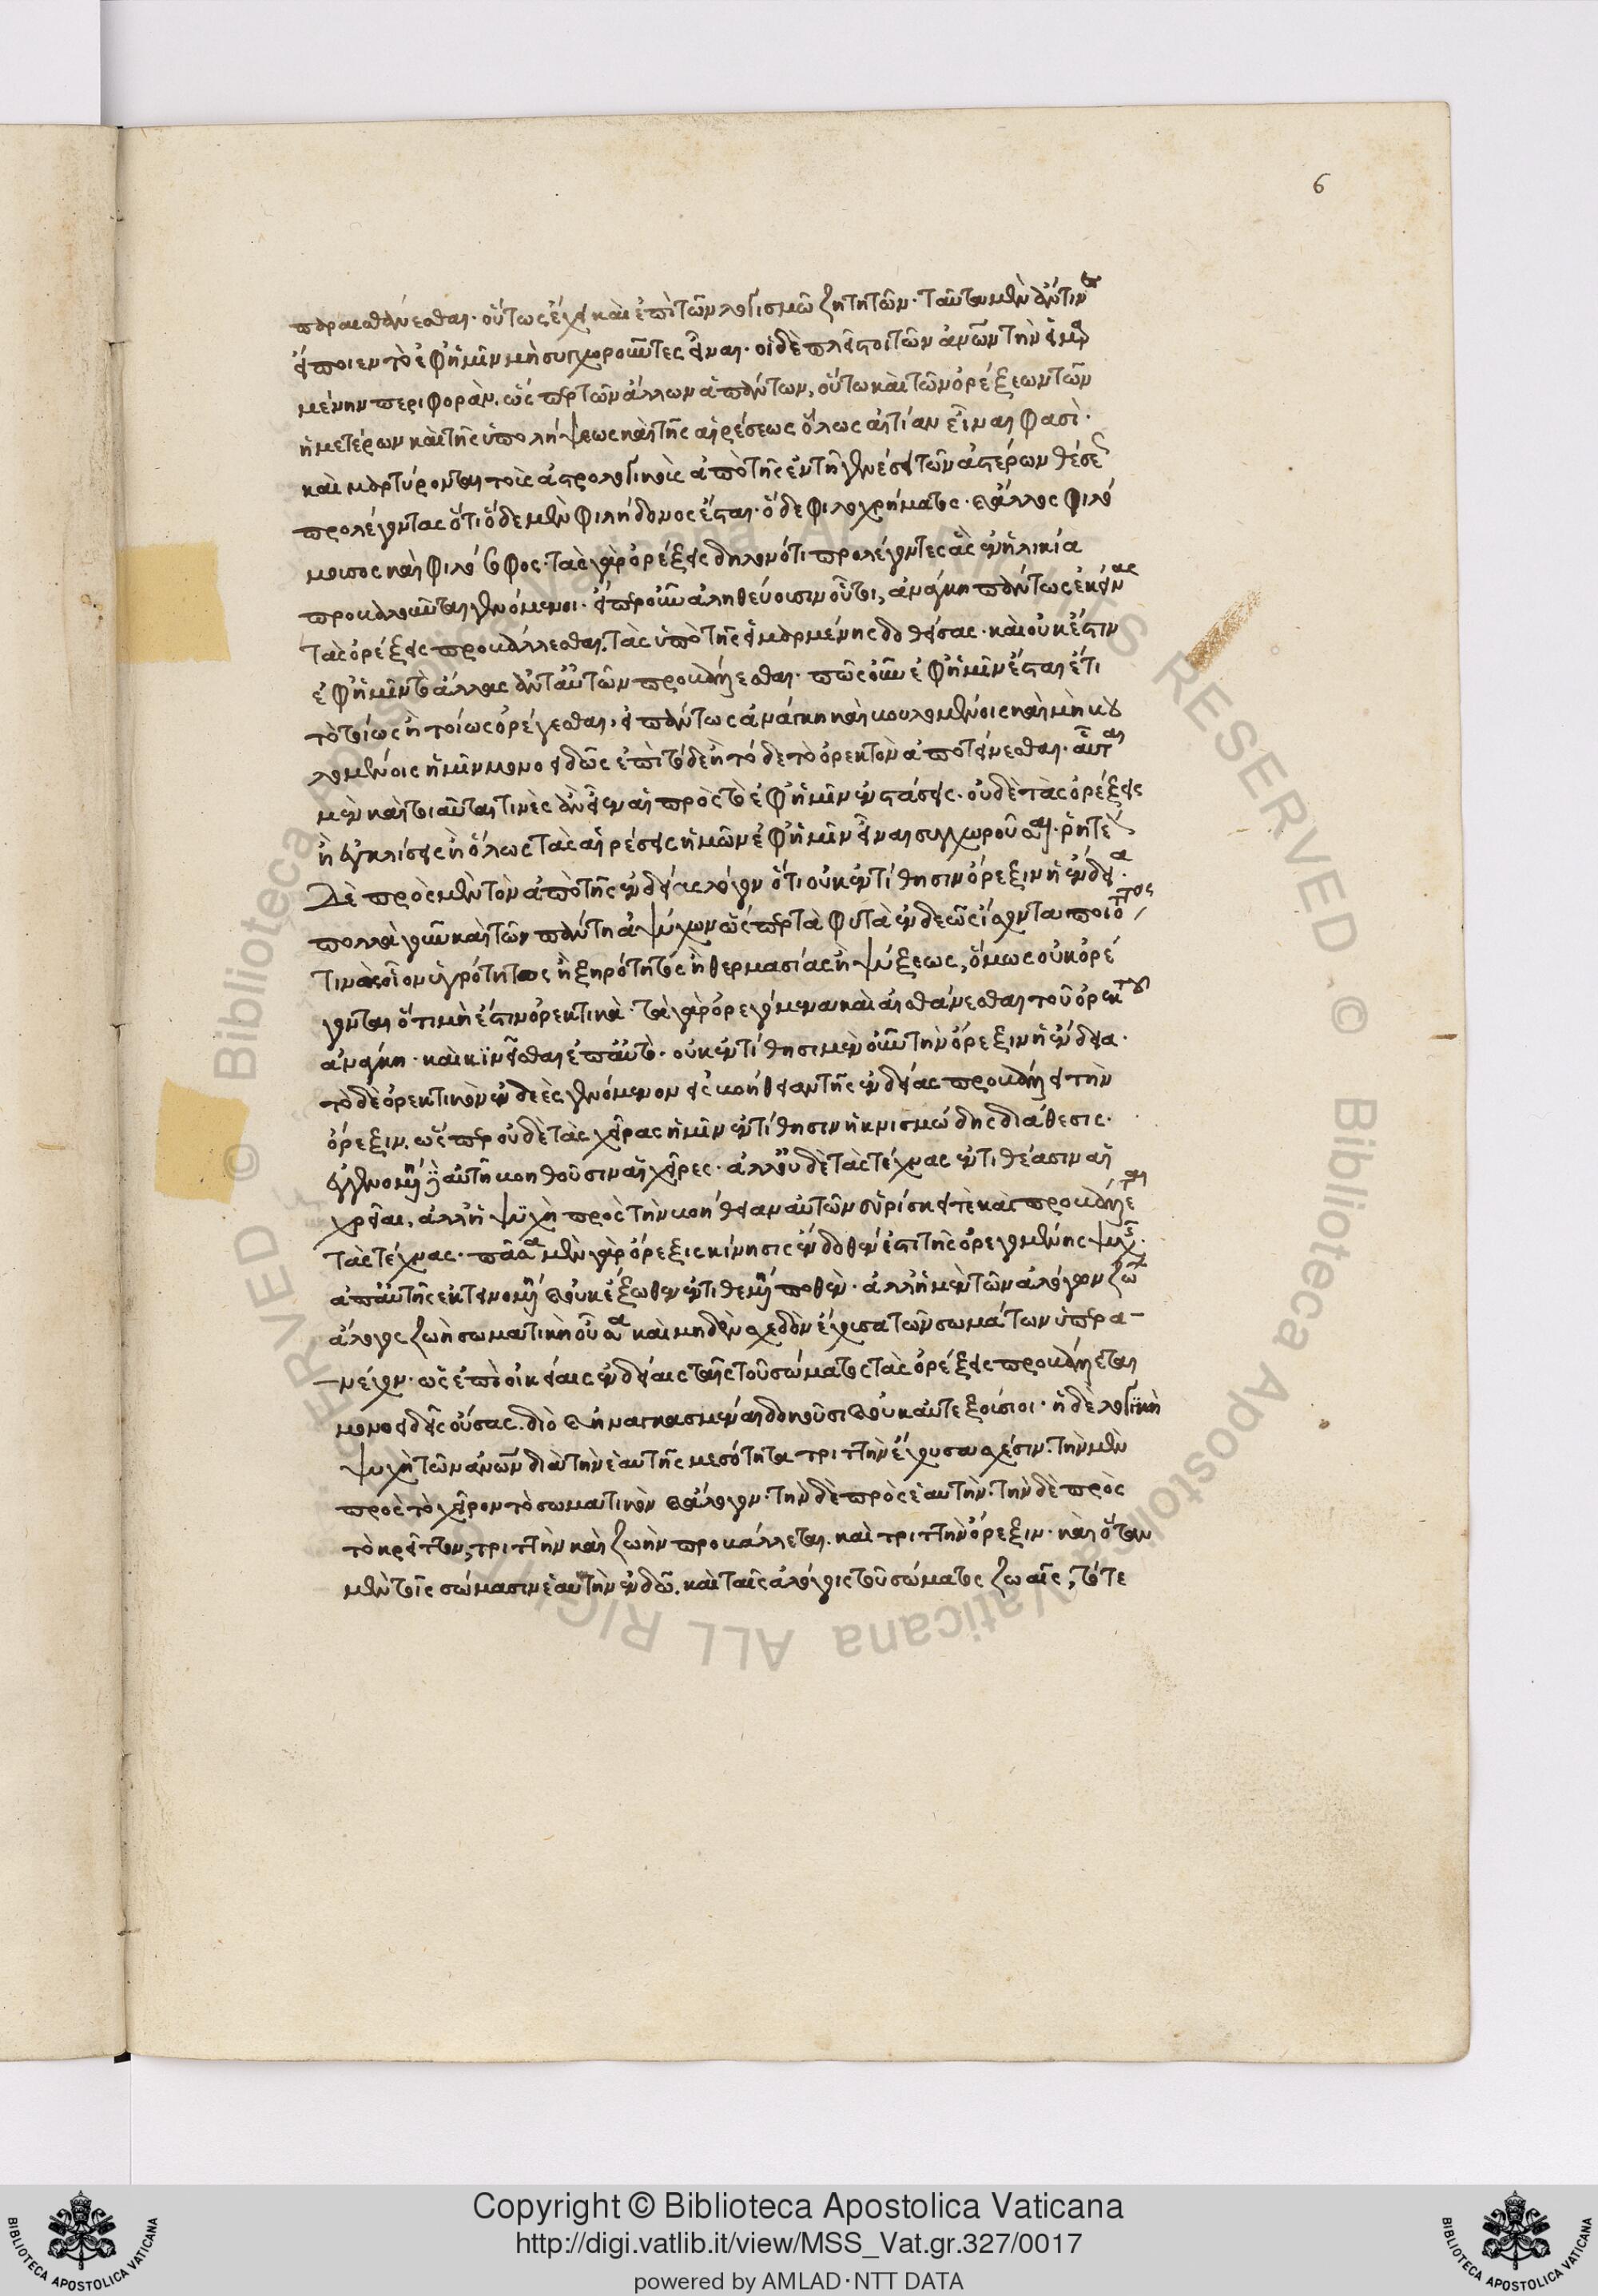 6
παραισθάνεσθαι· οὕτως ἔχει καὶ ἐπὶ τῶν λογισμῶ ζητητῶν· ταῦτα μὲν ἄν τινες
εἴποιεν τὸ ἐφ' ἡμῖν μὴ συγχωροῦντες εἶναι· οἱ δὲ πλεῖστοι τῶν ἀνων τὴν εἱμαρ
μένην περιφοράν, ὥσπερ τῶν ἄλλων ἁπάντων, οὕτω καὶ τῶν ὀρέξεων τῶν
ἡμετέρων καὶ τῆς ὑπολήψεως καὶ τῆς αἱρέσεως ὅλως αἰτίαν εἶναι φασὶ·
καὶ μαρτύρονται τοῖς ἀστρολογικοῖς ἀπὸ τῆς ἐν τῆ γενέσει τῶν ἀστέρων θέσεως
προλέγοντας ὅτι ὅδε μὲν φιλήδονος ἔσται· ὅδε φιλοχρήματος· ὁ ἄλλος φιλό
μουσος καὶ φιλόσοφος· τὰς γὰρ ὀρέξεις δηλονότι προλέγοντες ἃς ἐν ἡλικία
προκαλοῦνται γενόμενοι· εἴπερ οὖν ἀληθεύουσιν οὗτοι, ἀνάγκη πάντως ἐκείνας
τὰς ὀρέξεις προβάλλεσθαι, τὰς ὑπὸ τῆς εἱμαρμένης δοθείσας· καὶ οὐκ ἔστιν
ἐφ' ἡμῖν τὸ ἄλλας ἀντ' αὐτῶν προβάλλεσθαι· πῶς οὖν ἐφ' ἡμῖν ἔσται ἔτι
τὸ τοίως ἢ τοίως ὀρέγεσθαι, εἰ πάντως ἀνάγκη καὶ βουλομένοις καὶ μὴ βου
λομένοις ἡμῖν μονοειδῶς ἐπὶ τόδε ἢ τόδε τὸ ὀρεκτὸν ἀποτείνεσθαι· αὗται
μὲν καὶ τοιαῦται τινὲς ἂν εἶεν αἱ πρὸς τὸ ἐφ' ἡμῖν ἐνστάσεις· οὐδὲ τὰς ὀρέξεις
ἢ ἐκκλίσεις ἢ ὅλως τὰς αἱρέσεις ἡμῶν ἐφ' ἡμῖν εἶναι συγχωροῦσαι· ῥητέον
δὲ πρὸς μὲν τὸν ἀπὸ τῆς ἐνδείας λόγον ὅτι οὐκ ἐντίθησιν ὄρεξιν ἡ ἔνδεια·
πολλὰ γοῦν καὶ τῶν πάντη ἀψύχων ὥσπερ τὰ φυτὰ ἐνδεῶς ἴσχοντα ποιότητος
τινὸς οἷον ὑγρότητος ἢ ξηρότητος ἢ θερμασίας ἢ ψύξεως, ὅμως οὐκ ὀρέ
γονται ὅτι μὴ ἔστιν ὀρεκτικά· τὰ γὰρ ὀρεγόμενα καὶ αἰσθάνεσθαι τοῦ ὀρεκτοῦ
ἀνάγκη· καὶ κινεῖσθαι ἐπ' αὐτὸ· οὐκ ἐντίθησι μὲν οὖν τὴν ὄρεξιν ἡ ἔνδεια·
τὸ δὲ ὀρεκτικὸν ἐνδεὲς γενόμενον εἰς βοήθειαν τῆς ἐνδείας προβάλλει τὴν
ὄρεξιν, ὥσπερ οὐδὲ τὰς χεῖρας ἡμῖν ἐντίθησιν ἡ κνισμώδης διάθεσις·
ἐγγινομένη αὐτῆ βοηθοῦσιν αἱ χεῖρες· ἀλλ' οὐδὲ τὰς τέχνας ἐντιθέασιν αἱ
χρεῖαι, ἀλλ' ἡ ψυχὴ πρὸς τὴν βοήθειαν αὐτῶν εὑρίσκει τὲ καὶ προβάλλεται
τὰς τέχνας· πᾶσα μὲν γὰρ ὄρεξις κίνησις ἔνδοθεν ἐστὶ τῆς ὀρεγομένης ψυχῆς·
ἀπ' αὐτῆς ἐκτεινομένη οὐκ ἔξωθεν ἐντιθεμένη ποθὲν· ἀλλ' ἡ μὲν τῶν ἀλόγων ζώων
ἄλογος ζωὴ σωματικὴ οὖσα καὶ μηδὲν σχεδὸν ἔχουσα τῶν σωμάτων ὑπερα-
-νέχον· ὡς ἐπὶ οἰκείαις ἐνδείαις ταῖς τοῦ σώματος τὰς ὀρέξεις προβάλλεται
μονοειδεῖς οὔσας, διὸ ἠναγκασμέναι δοκοῦσι οὐκ αὐτεξούσιοι· ἡ δὲ λογικὴ
ψυχὴ τῶν ἀνων διὰ τὴν ἑαυτῆς μεσότητα τριττὴν ἔχουσα σχέσιν· τὴν μὲν
πρὸς τὸ χεῖρον τὸ σωματικὸν ἄλογον· τὴν δὲ πρὸς ἑαυτὴν· τὴν δὲ πρὸς
τὸ κρεῖττον, τριττὴν καὶ ζωὴν προβάλλεται, καὶ τριττὴν ὄρεξιν· καὶ ὅταν
μὲν τοῖς σώμασιν ἑαυτὴν ἐνδῶ, καὶ ταῖς ἀλόγοις τοῦ σώματος ζωαῖς, τότε
Copyright © Biblioteca Apostolica Vaticana
http://digi.vatlib.it/view/MSS_Vat.gr.327/0017
powered by AMLAD·NTT DATA
BIBLIOTECA APOSTOLICA VATICANA
BIBLIOTECA APOSTOLICA VATICANA
© Biblioteca Apostolica Vaticana ALL RIGHTS RESERVED